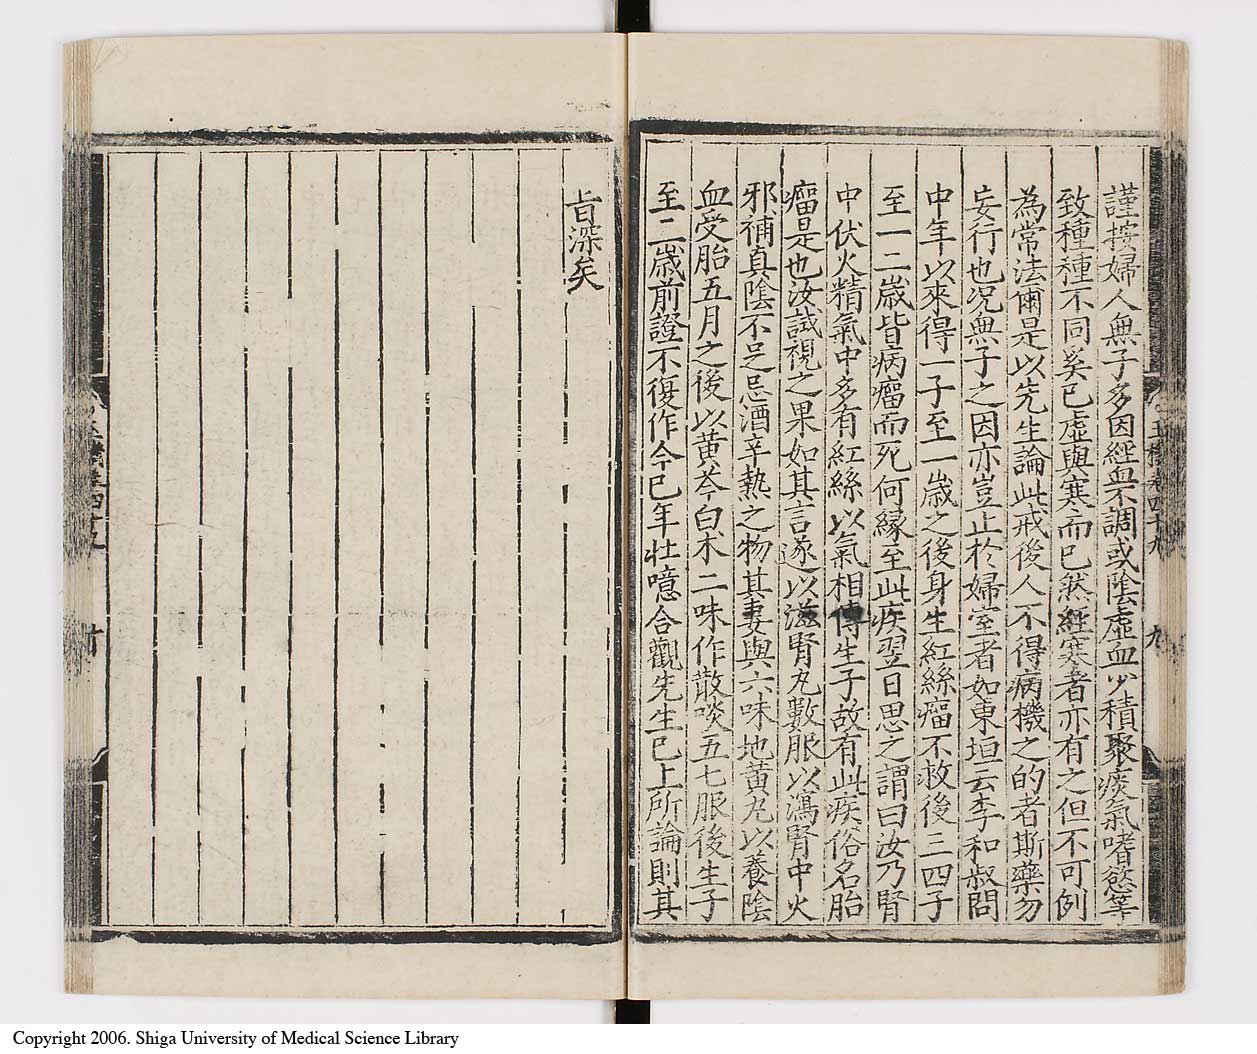 謹按婦人無子多因經血不調或陰虛血少積聚痰氣嗜慾等
致種種不同奚已虛與寒而已然經寒者亦有之但不可例
為常法爾是以先生論此戒後人不得病機之的者斯藥勿
妄行也况無子之因亦豈止於婦室者如東垣云李和叔問
中年以來得一子至一歲之後身生紅絲瘤不救後三四子
至一二歲皆病瘤而死何緣至此疾翌日思之謂曰汝乃腎
中伏火精氣中多有紅絲以氣相傳生子故有此疾俗名胎
瘤是也汝試視之果如其言遂以滋腎丸數服以瀉腎中火
邪補真陰不足忌酒辛熱之物其妻與六味地黃丸以養陰
血受胎五月之後以黃芩白朮二味作散啖五七服後生子
至二歲前證不復作今已年壯噫合觀先生已上所論則其
旨深矣
卷四十九
九
十
Copyright 2006. Shiga University of Medical Science Library